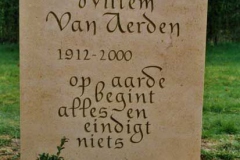 Willem
Van Aerden
1912-2000
op aarde
begint
alles en
eindigt
niets